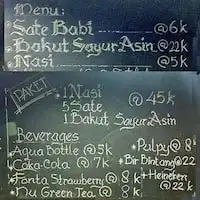 Menu:
Sate Babi @6k
Bakut Sayur Asin @22k
Nasi @5k
PAKET
1 Nasi
5 Sate @ 45k
1 Bakut Sayur Asin
Beverages
Aqua Bottle @5k
Coka Cola @7k
Fanta Strawberry @ 8k
Nu Green Tea @ 8k
Pulpy @ 8k
Bir Bintang @22
Heineken @ 22 k